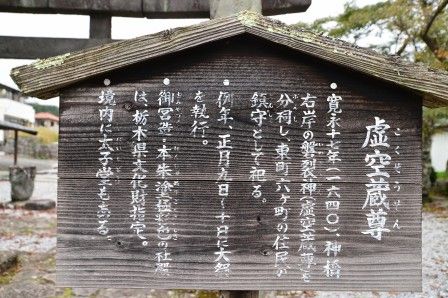 虚空蔵尊
こくぞうそん
・寛永十七年(一六四〇)、神橋
右岸の磐裂神(虚空蔵尊)を
分祠し、東町六ヶ町の住民が
鎮守として祀る。
・例年、正月九日〜十日に大祭
を執行。
・御宮殿 本朱塗極彩色の社殿
は、栃木県文化財指定。
境内に太子堂もある。